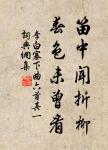 笛中聞折柳
春色未曾看
李白塞下曲六首其一
詞典網集